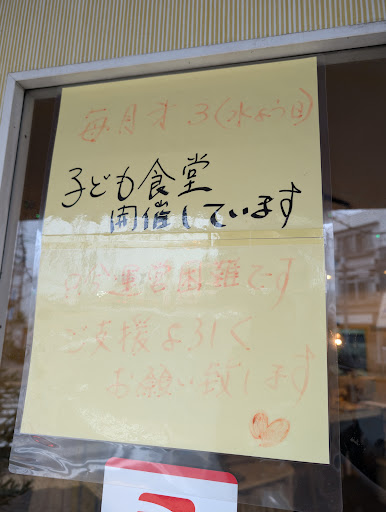 毎月第3(水よう日)
子ども食堂
開催しています
運営困難です
ご支援よろしく
お願い致します